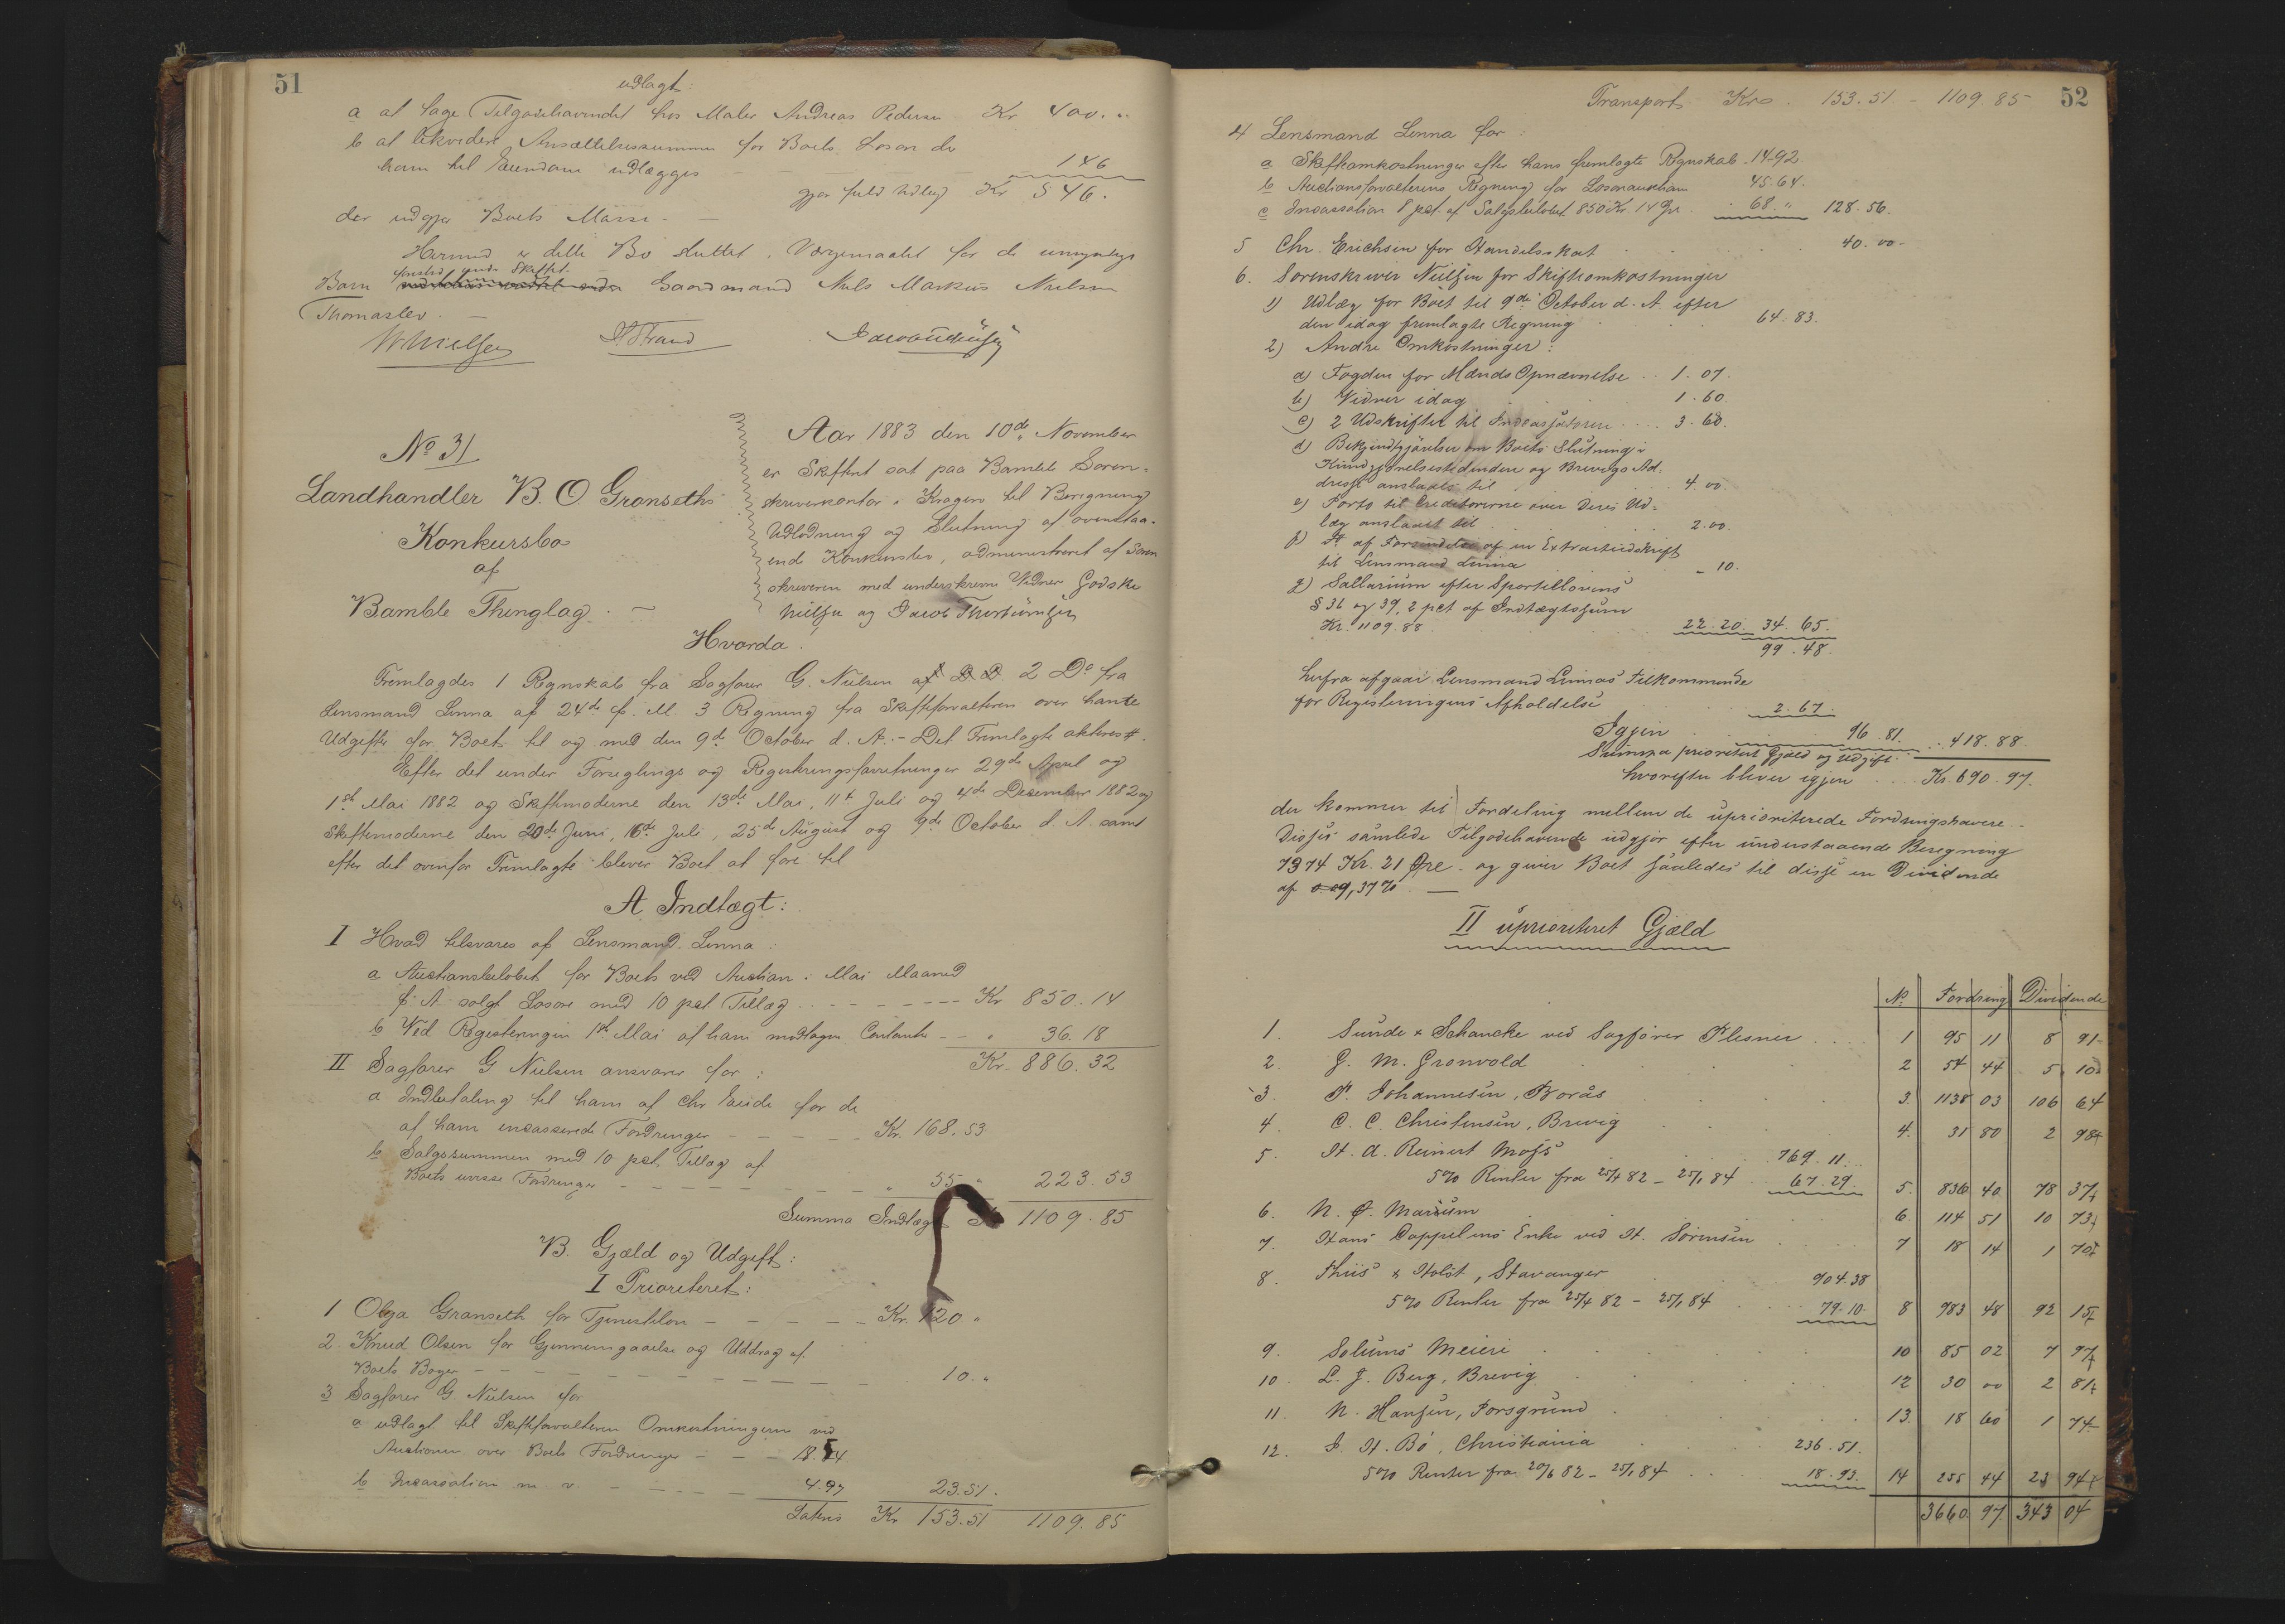 51
udlagt:
a at tage Tilgodehavendet hos Maler Andreas Pedersen Kr 400.„
b at likvidere Ansættelsessummen for Boets Løsøre der
ham til Eiendom udlægges 146
gjør fuld Udlæg Kr 546.
der udgjør Boets Masse.
Hermed er dette Bo sluttet. Værgemaalet for de umyndige
Skiftet.
Børn Gaardmand Niels Markus Nielsen
Thomaslev.
WNielsen
No 31
Landhandler B. O. Grønseths
Konkursbo
af
Bamble Thinglag.
Aar 1883 den 10de November
er Skifteret sat paa Bamble Soren-
skriverkontor i Kragerø til Beregning
Udlodning og Slutning af ovenstaa-
ende Konkursbo, administreret af Soren
skriveren med underskrevne Vidner Godske
Nielsen og Jacob
Hvorda:
Fremlagdes 1 Regnskab fra Sagfører G. Nielsen 2 Do fra
Lensmand Linna af 24de f. M. 3 Regning fra Skifteforvalteren over hans
Udgifter for Boet til og med den 9de October d. A. – Det Fremlagte
Efter det under Forseglings og Registreringsforretninger 29de April og
1ste Mai 1882 og Skiftemøderne den 13de Mai, 11te Juli og 4de December 1882 og
Skiftemøderne den 20de Juni, 16de Juli, 25de August og 9de October d. A. samt
efter det ovenfor Fremlagte bliver Boet at føre til
A Indtægt:
I Hvad tilsvares af Lensmand Linna:
a Auctionsbeløbet for Boets ved Auction i Mai Maaned
f. A. solgt Løsøre med 10 pct Tillæg Kr 850.14
b Ved Registreringen 1ste Mai af ham modtagen Contante „ 36.18
Kr. 886.32
II Sagfører G Nielsen ansvarer for:
a Indbetaling til ham af Chr Eeide for de
af ham incasserede Fordringer Kr. 168.53
b Salgssummen med 10 pct. Tillæg af
Boets uvisse Fordringer „ 55 „ 223.53
Summa Indtægt 1109.85
B. Gjæld og Udgift:
I Prioriteret:
1 Olga Grønseth for Tjenesteløn Kr. 120 „
2. Knud Olsen for Gjennemgaaelse og Uddrag af
Boets Bøger 10.„
3 Sagfører G. Nielsen for
a udlagt til Skifteforvalteren Omkostningerne ved
Auctionen over Boets Fordringer 18.54
b Incassation m. v. 4.97 23.51.
Lateris Kr 153.51 1109.85
52
Transport Kr. 153.51 – 1109.85
4 Lensmand Linna for:
a Skifteomkostninger efter hans fremlagte Regnskab 14.92.
b Auctionsforvalterens Regning for Løsøreauction 45.64.
c Incassation 8 pct. af Salgsbeløbet 850 Kr 14 Ør. 68.„ 128.56.
5 Chr. Erichsen for Handelsskat 40.00.
6. Sorenskriver Nielsen for Skifteomkostninger
1) Udlæg for Boet til 9de October d. A. efter
den idag fremlagte Regning 64.83.
2) Andre Omkostninger:
a) Fogden for Mænds Opnævnelse 1.07.
b) Vidner idag 1.60.
c) 2 Udskrifter til Incassatoren 3.68.
d) Bekjendtgjørelser om Boets Slutning i
Kundgjørelsestidenden og Brevigs Ad-
dresse anslaaes til 4.00.
e) Porto til Creditorerne over Deres Ud-
læg anslaaet til 2.00.
f) Do af Forsendelse af en Extractudskrift
til Lensmand Linna „ 10.
g) Sallarium efter Sportellovens
§ 36 og 39, 2 pct af Indtægtssum
Kr. 1109.88 22.20. 34.65.
99.48.
herfra afgaar Lensmand Linnas Tilkommende
for Registeringens Afholdelse 2.67.
Igjen 96.81. 418.88.
Summa prioritert Gjæld og Udgift.
hvorefter bliver igjen Kr. 690.97.
der kommer til Fordeling mellem de uprioriterede Fordringshavere. –
Disses samlede Tilgodehavende udgjør efter understaaende Beregning
7374 Kr. 21 Øre. og giver Boet saaledes til disse en Dividende
af 9,37 %
II uprioriteret Gjæld
No. Fordring Dividende
1. Sunde & Schancke ved Sagfører Plesner 1 95 11 8 91
2. G. M. Grønvold 2 54 44 5 10
3. P. Johannesen, Borås 3. 1138 03 106 64
4. C. C. Christensen, Brevig 4. 31 80 2 98
5. H. A. Reinert Moss 769.11.
5% Renter fra 25/4 82 – 25/1 84 67.29. 5. 836 40 78 37
6. N. O. Marium 6. 114 51 10 73
7. Hans Cappelens Enke ved H. Sørensen 7 18 14 1 70
8. Thiis & Holst, Stavanger 904.38
5% Renter fra 25/4 82 – 25/1 84 79.10. 8 983 48 92 15
9. Solums Meieri 10 85 02 7 97
10. L. J. Berg, Brevig 12 30 00 2 81
11. N. Hansen, Porsgrund 13. 18 60 1 74
12. J. H. Bö, Christiania 236.51.
5% Renter fra 20/6 82 – 25/1 84 18.93. 14 255 44 23 94
3660 97 343 04